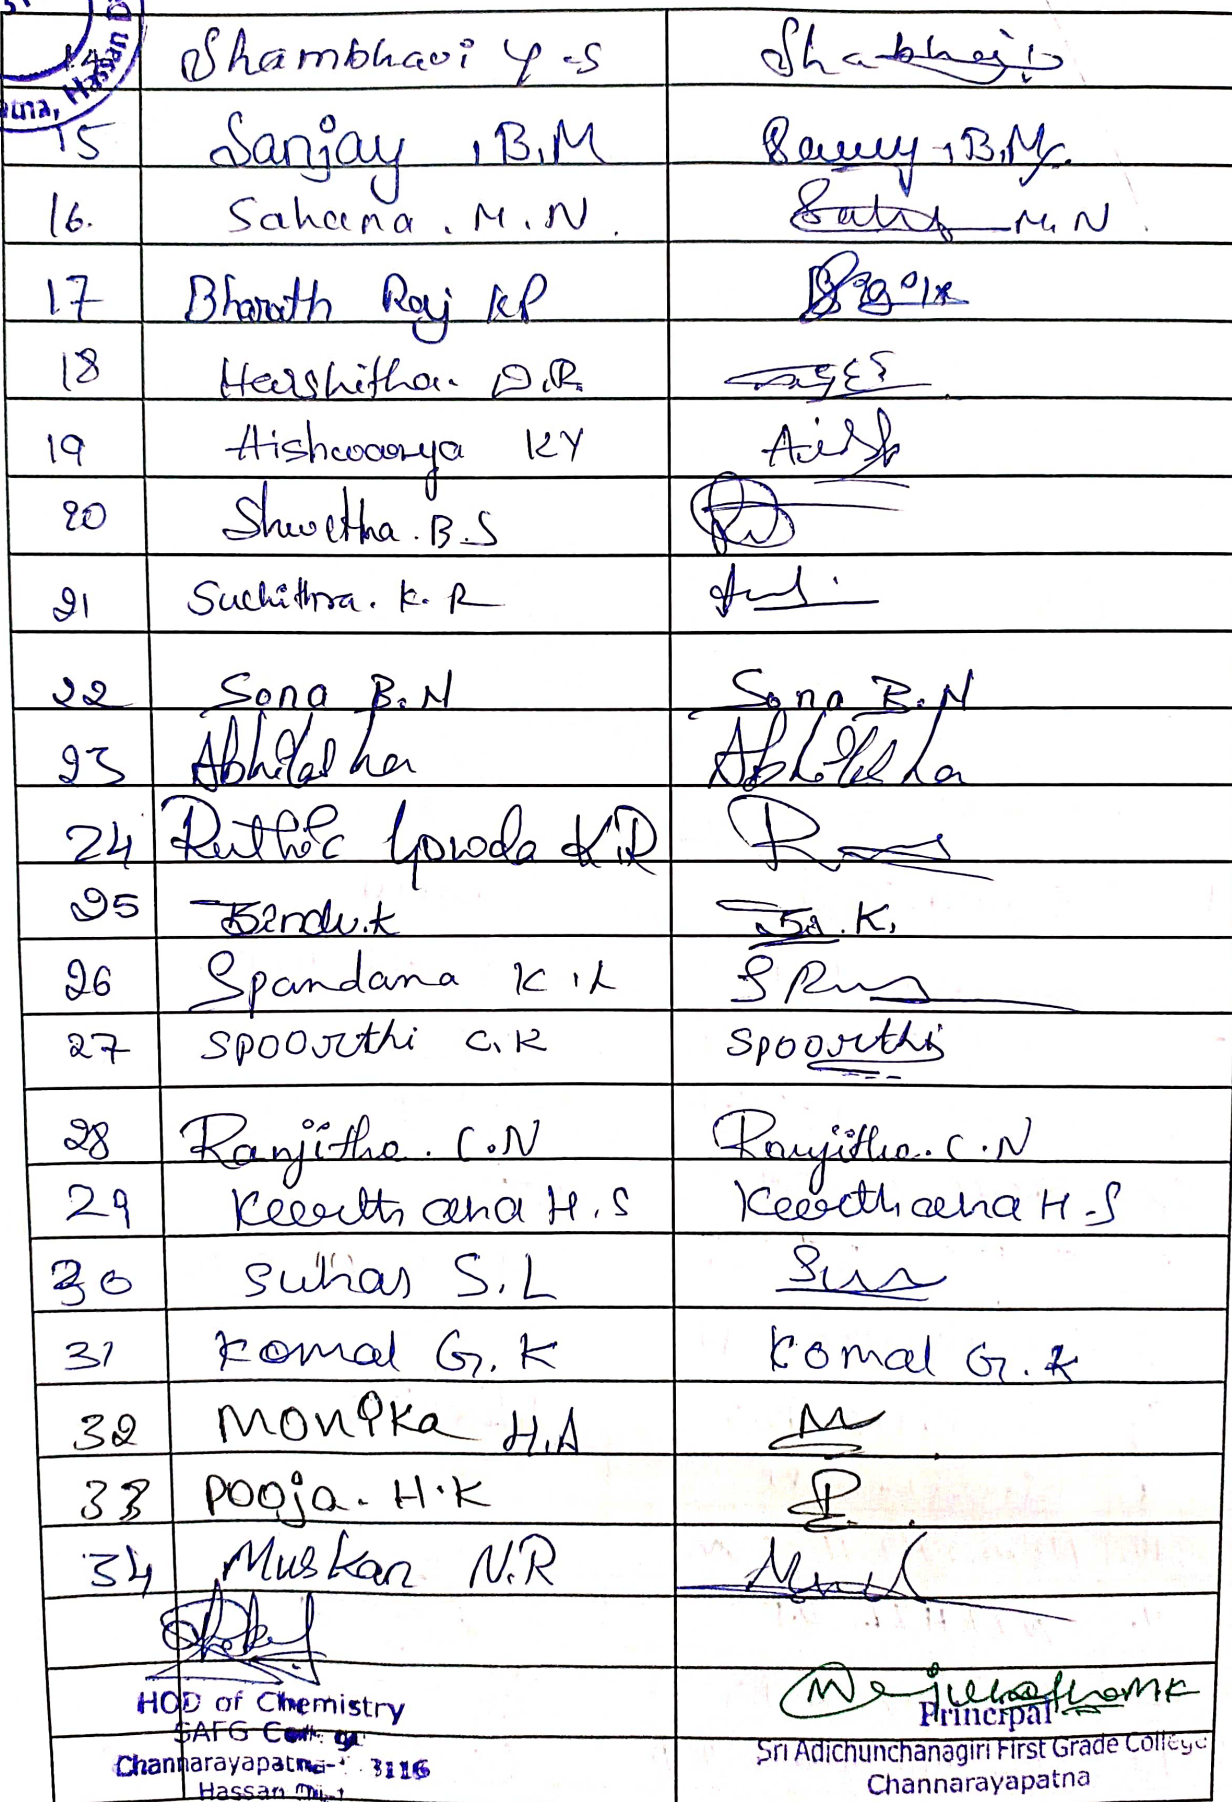 14 Shambhavi Y.S
15 Sanjay .B.M B.M
16. Sahana . M . N . M. N
17 Bharath Raj KP
18 Harshitha. D.R.
19 Aishwarya KY Aish
20 Shwetha . B.S
21 Suchithra. K. R
22 Sona B.N Sona B.N
23 Abhilasha Abhilasha
24 Ruthic Gowda K.R
25 Bindu.k K.
26 Spandana K.L
27 Spoorthi C.K Spoorthi
28 Ranjitha. C.N Ranjitha. C.N
29 Keerthana H.S Keerthana H.S
30 Suhas S.L
31 Komal G.K Komal G.K
32 Monika H.A M
33 Pooja. H.K P
34 Muskan N.R
HOD of Chemistry
SAFG College
Channarayapatna- 3116
Hassan
Manjunatha M K
Principal
Sri Adichunchanagiri First Grade College
Channarayapatna